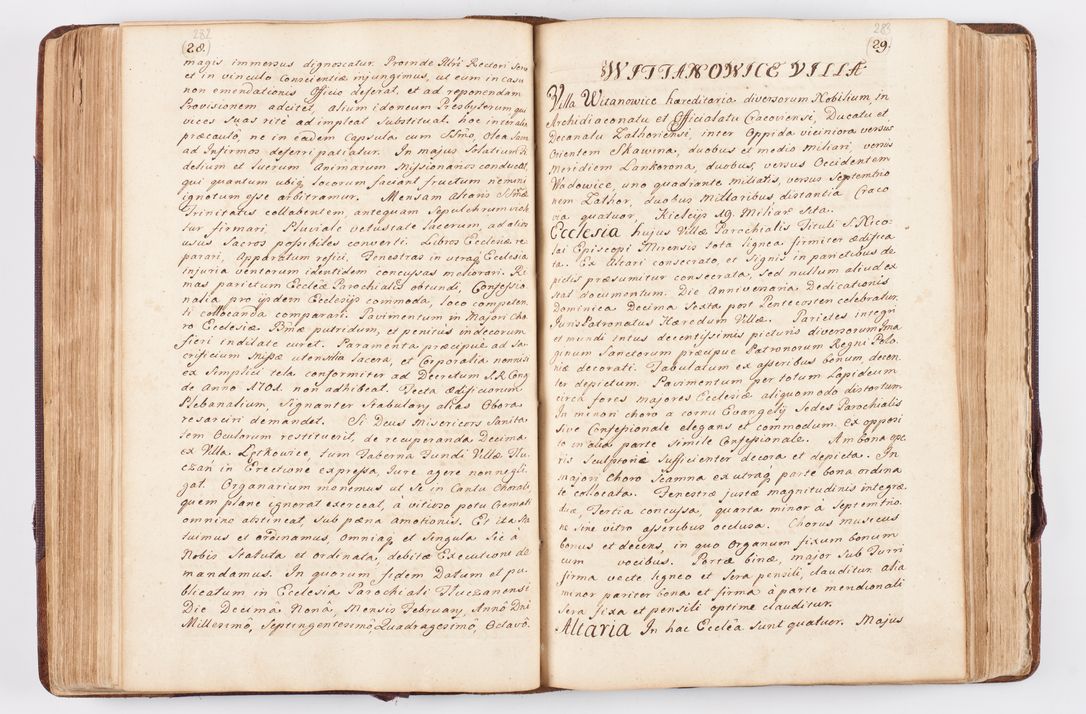 282
(28.
magis immersus dignoscatur. Proinde Altri Rectori Serv
et in vinculo Conscientiæ injungimus, ut eum in casu
non emendationis Officio deferat, et ad reponendam
Provisionem aduiet, alium idoneum Presbyterum qui
vices suas ritè ad impleat Substituat, hoc interalia
præcautô ne in eâdem Capsula cum SSmo, Olea Sacra
ad Infirmos deferri patiatur. In majus Solatium Fi
delium et lucrum Animarum Missionarios conducat,
qui quantum ubiq locorum faciant fructum nemini
ignotum esse arbitramur. Mensam Altaris SSmæ
Trinitatis collabentem, antequam Sepulchrum viole
tur firmari. Pluviale vetustate lacerum, ad alios
usus Sacros possibiles converti. Libros Ecclesiæ re
parari, Apparatum refici, Fenestras in utraq Ecclesia
injuria ventorum identidem concussas meliorari. Ri
mas parietum Eccleæ Parochialis obtundi, Confessio
nalia pro ijsdem Ecclesijs commoda, loco competen
ti collocanda comparari. Pavimentum in Majori Cho
ro Ecclesiæ Bmæ putridum, et penitus indecorum
fieri inditatè curet. Paramenta præcipuè ad Sa
crificium Missæ utensilia lacera, et Corporalia nonnisi
ex Simplici tela conformiter ad Decretum S.R.Cong
de Anno 1701. non adhibeat. Tecta Ædificiorum
Plebanalium, Signanter Stabulary alias Obora
resarciri demandet. Si Deus misericors Sanita
tem Oculorum restituerit, de recuperanda Decima
ex Villa Lgtkowice, tum Taberna Fundi Villæ Tlu
czań in Erectione expressa Jure agere non negli
gat. Organarium monemus ut Se in Cantu Chorali
quem plane ignorat exerceat, à vitioso potu Cremati
omnino abstineat, sub pæna amotionis. Et ita Sta
tuimus et ordinamus, omniaq et Singula Sic à
Nobis Statuta et ordinata, debitæ Executioni de
mandamus. In quorum fidem Datum et pu
blicatum in Ecclesia Parochiali Tluczanensi
Die Decimâ Nonâ, Mensis February, Annô Dni
Millesimô, Septingentesimô, Quadragesimô, Octavô.
283
(29.
WITTANOWICE VILLA
Villa Witanowice hæreditaria diversorum Nobilium, in
Archidiaconatu et Officialatu Cracoviensi, Ducatu et
Decanatu Zathoriensi, inter Oppida viciniora versus
Orientem Skawina, duobus et medio miliari, versus
Meridiem Lankorona, duobus, versus Occidentem
Wadowice, uno quadrante miliaris, versus Septentrio
nem Zathor, duobus Milliaribus, distantia Craco
via quatuor, Kielcijs 19. Miliar Sita.
Ecclesia hujus Villæ Parochialis Tituli S. Nico
lai Episcopi Mirensis tota lignea firmiter ædifica
ta. Ex altari consecrato, et Signis in parietibus de
pictis præsumitur consecrata, Sed nullum aliud ex
stat documentum. Die Anniversaria Dedicationis
Dominica Decima Sexta, post Pentecosten celebratur.
Juris Patronatus Hæredum Villæ. Parietes integri
et mundi intus decentissimis picturis diversorum Ima
ginum Sanctorum præcipue Patronorum Regni Polo
niæ decorati. Tabulatum ex asseribus bonum decen
ter depictum. Pavimentum per totum Lapideum
circa fores majores Ecclesiæ aliquomodo distortum.
In minori choro a cornu Evangelij Sedes Parochialis
sive Confessionale elegans et commodum. Ex opposi
to in alia parte Simile Confessionale. Ambona ope
ris Sculptoriæ Sufficienter decora et depicta. In
majori Choro Scamna ex utraq parte bona ordina
te collocata. Fenestræ justæ magnitudinis integræ
duæ, Tertia concussa, quarta minor à Septemtrio
ne Sine vitro asseribus occlusa. Chorus musicus
bonus et decens, in quo Organum fixum bonum
cum vocibus. Portæ binæ, major Sub Turri
firma vecte ligneo et Sera pensili, clauditur, alia
minor pariter bona et firma à parte meridionali
Sera fixa et pensili optimè clauditur.
Altaria In hac Ecclêa Sunt quatuor. Majus